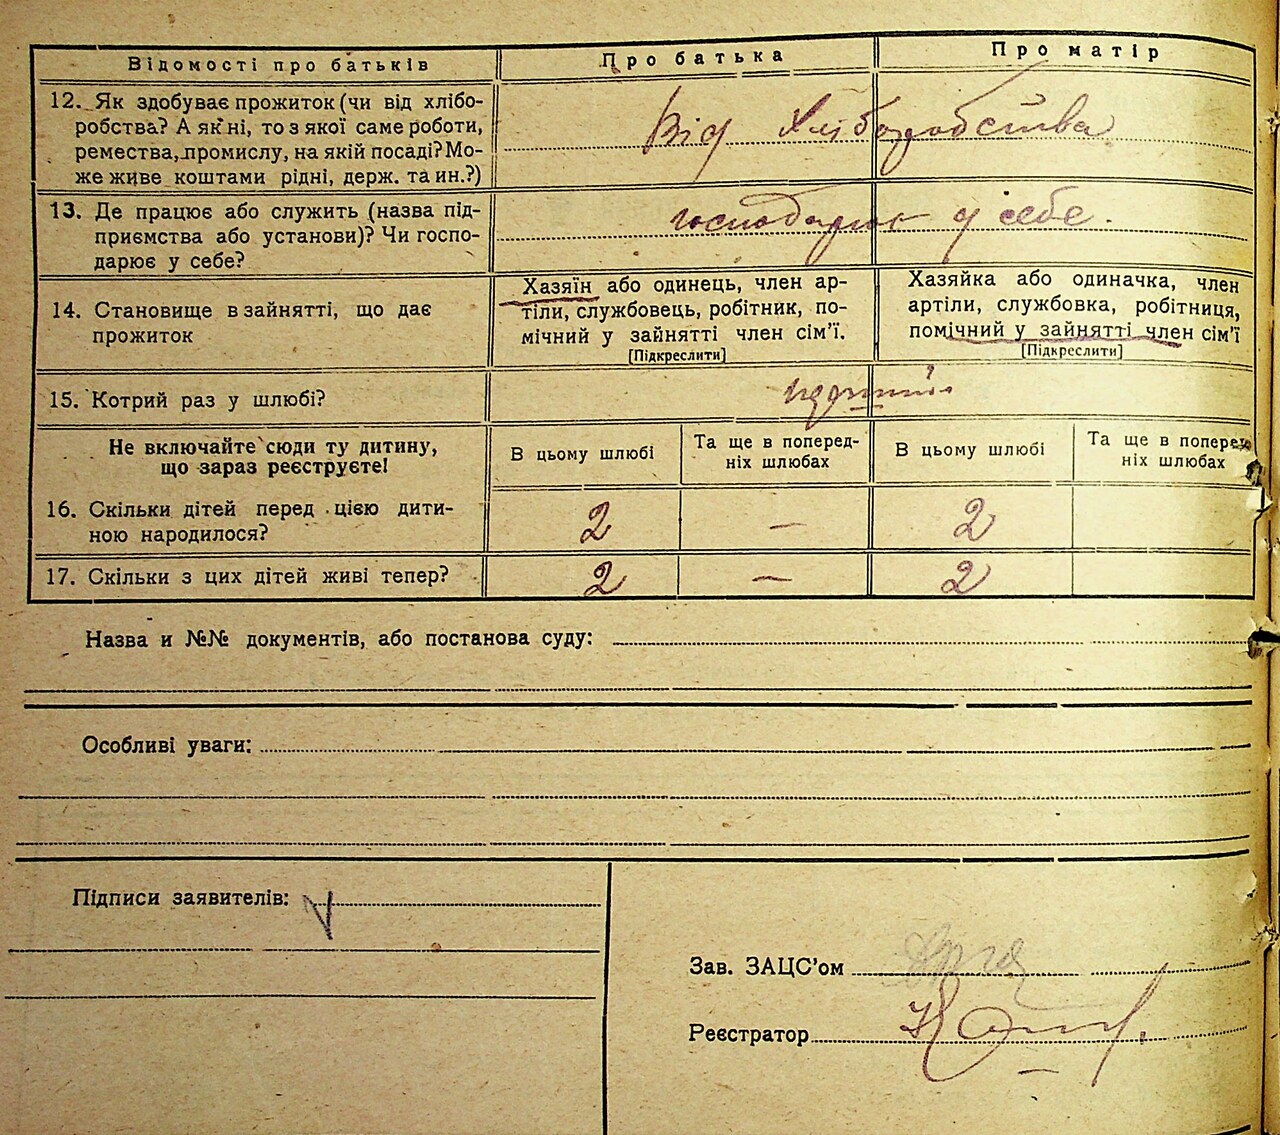 Відомості про батьків
Про батька
Про матір
12. Як здобуває прожиток (чи від хлібо-
робства? А як ні, то з якої саме роботи,
ремества, промислу, на якій посаді? Мо-
же живе коштами рідні, держ. та ин.?)
Від Хліборобства
13. Де працює або служить (назва під-
приємства або установи)? Чи госпо-
дарює у себе?
господарює у себе.
14. Становище в зайнятті, що дає
прожиток
Хазяїн або одинець, член ар-
тіли, службовець, робітник, по-
мічний у зайнятті член сім'ї.
[Підкреслити]
Хазяйка або одиначка, член
артіли, службовка, робітниця,
помічний у зайнятті член сім'ї
[Підкреслити]
15. Котрий раз у шлюбі?
Не включайте сюди ту дитину,
що зараз реєструєте!
В цьому шлюбі
Та ще в поперед-
ніх шлюбах
В цьому шлюбі
Та ще в поперед-
ніх шлюбах
16. Скільки дітей перед цією дити-
ною народилося?
2
—
2
17. Скільки з цих дітей живі тепер?
2
—
2
Назва и №№ документів, або постанова суду:
Особливі уваги:
Підписи заявителів:
Зав. ЗАЦС'ом
Реєстратор